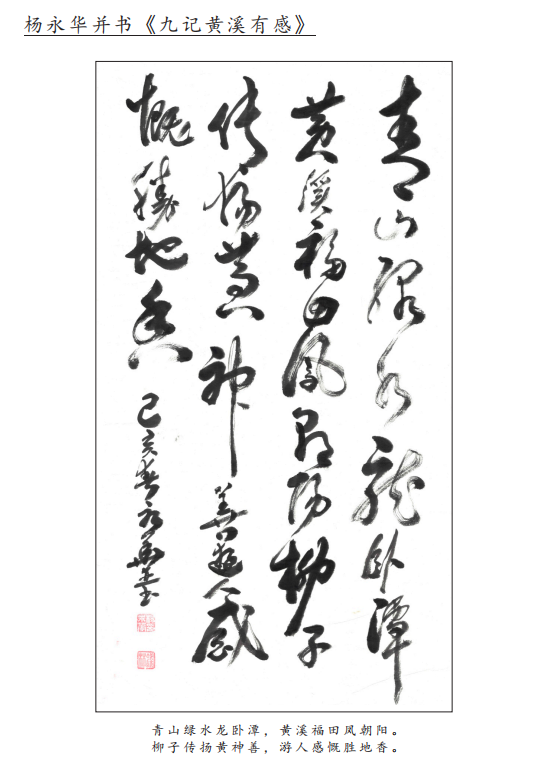 杨永华并书《九记黄溪有感》
青山绿水龙卧潭
黄溪福田凤朝阳柳子
传扬黄神善遊人感
慨勝地香
己亥春永華
青山绿水龙卧潭，黄溪福田凤朝阳。
柳子传扬黄神善，游人感慨胜地香。